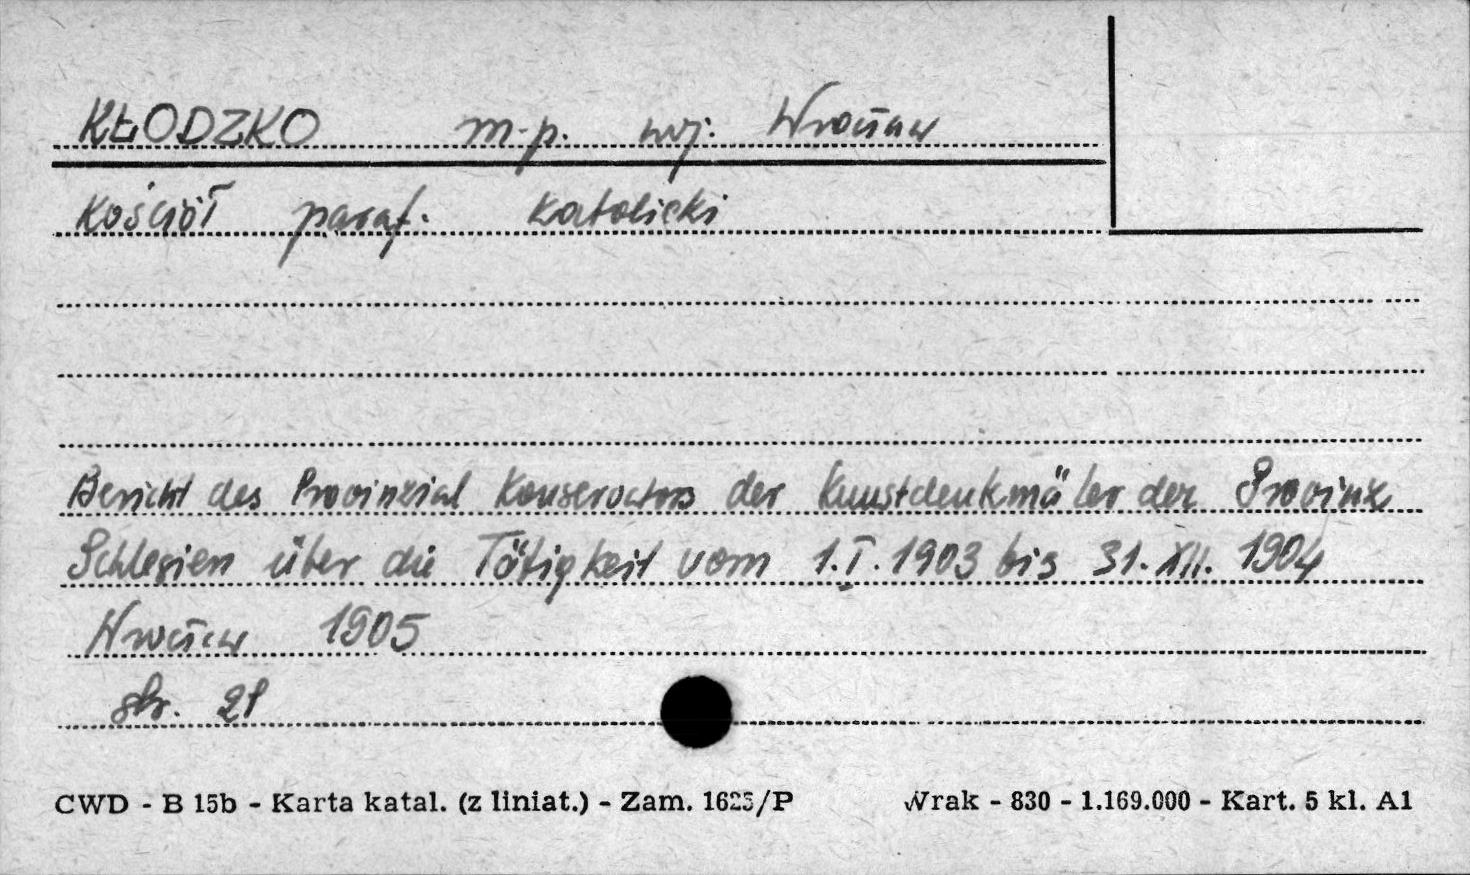 KŁODZKO m-p. woj. Wrocław
Kościół paraf. katolicki
Bericht des Provinzial Konservators der Kunstdenkmäler der Provinz
Schlesien über die Tätigkeit vom 1.I.1903 bis 31.XII.1904
Wrocław 1905
str. 21
CWD - B 15b - Karta katal. (z liniat.) - Zam. 1625/P Wrak - 830 - 1.169.000 - Kart. 5 kl. A1